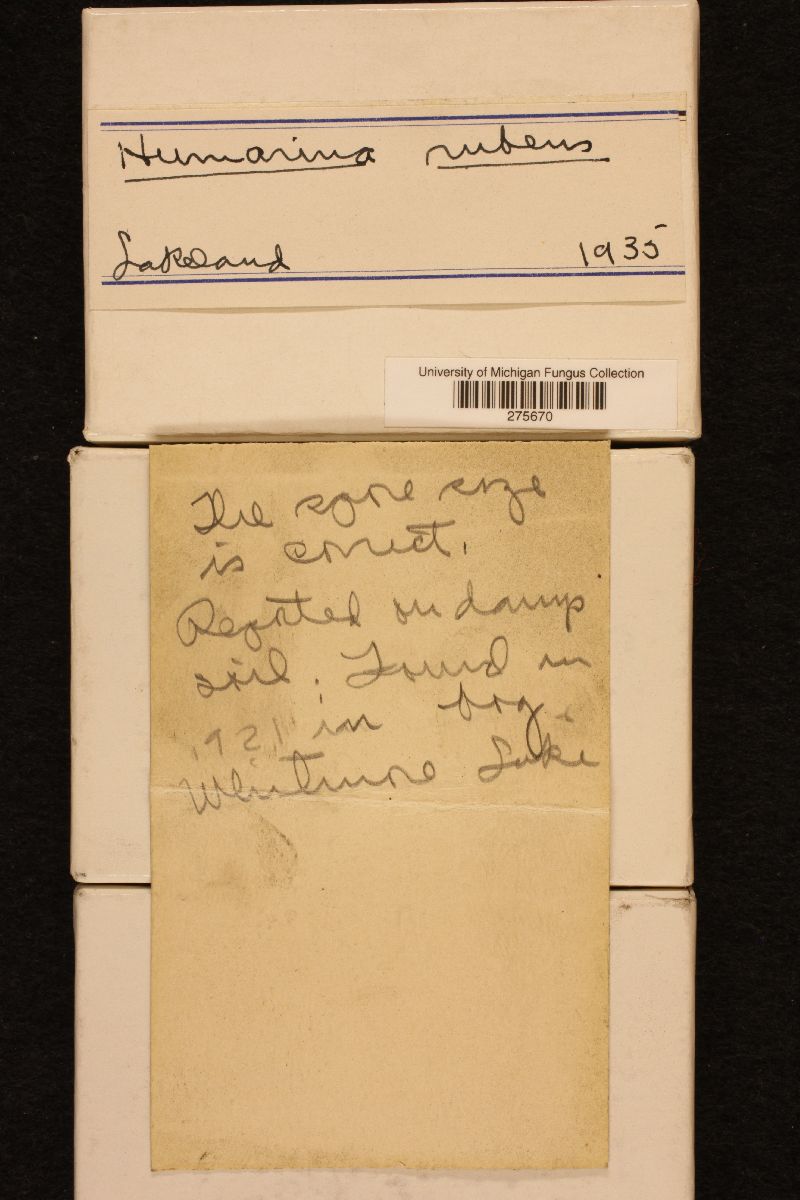 Humarina rubens
Lakeland 1935
University of Michigan Fungus Collection
275670
The spore size
is correct.
Reported on damp
soil. Found in
1921 in bog.
Whitmore Lake